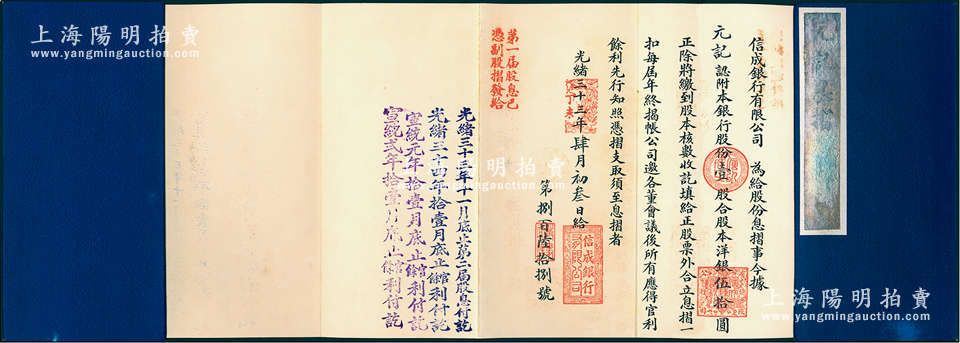 信成銀行有限公司 為給股份息摺事今據
元記 認附本銀行股份壹股合股本洋銀伍拾圓
正除將繳到股本核數收訖填給正股票外合立息摺一
扣每屆年終揭帳公司邀各董會議後所有應得官利
餘利先行知照憑摺支取須至息摺者
光緒三十三年肆月初叁日給
丁未
第捌百陸拾捌號
信成銀行
有限公司
第一屆股息已
憑副股摺發給
光緒三十三年十一月底止第二屆股息付訖
光緒三十四年拾壹月底止官餘利付訖
宣統元年拾壹月底止官餘利付訖
宣統弍年拾壹月底止官餘利付訖
上海陽明拍賣
www.yangmingauction.com
上海陽明拍賣
www.yangmingauction.com
上海陽明拍賣
www.yangmingauction.com